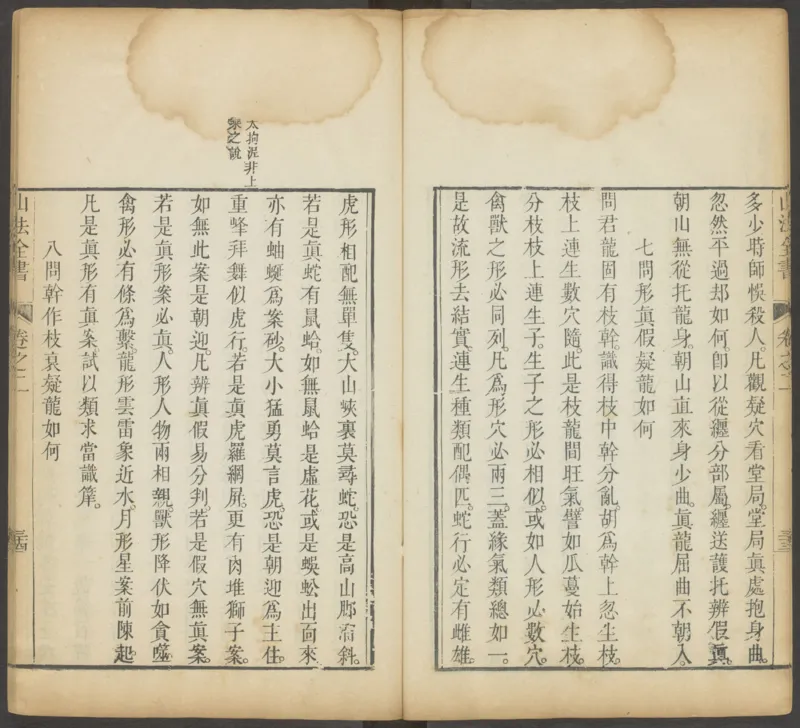 多少時師悞殺人凡觀疑穴看堂局堂局眞處抱身曲
忽然平過却如何卽以從纏分部屬纏送護托辨假眞
朝山無從托龍身朝山直來身少曲眞龍屈曲不朝入
七問形眞假疑龍如何
問君龍固有枝幹識得枝中幹分亂胡爲幹上忽生枝
枝上連生數穴隨此是枝龍間旺氣譬如瓜蔓始生枝
分枝枝上連生子生子之形必相似或如人形必數穴
禽獸之形必同列凡爲形穴必兩三蓋緣氣類總如一
是故流形去結實連生種類配偶匹蛇行必定有雌雄
山法全書
卷之二
太拘泥非上
乘之說
虎形相配無單隻大山峽裏莫尋蛇恐是高山脚斜
若是眞蛇有鼠蛤如無鼠蛤是虛花或是蜈蚣出面來
亦有蚰蜒爲案砂大小猛勇莫言虎恐是朝迎爲主住
重峰拜舞似虎行若是眞虎羅網屏更有肉堆獅子案
如無此案是朝迎凡辨眞假易分判若是假穴無眞案
若是眞形案必眞人形人物兩相親獸形降伏如貪噬
禽形必有條爲繫龍形雲雷象近水月形星案前陳起
凡是眞形有眞案試以類求當識筭
八問幹作枝裒疑龍如何
山法全書
卷之二